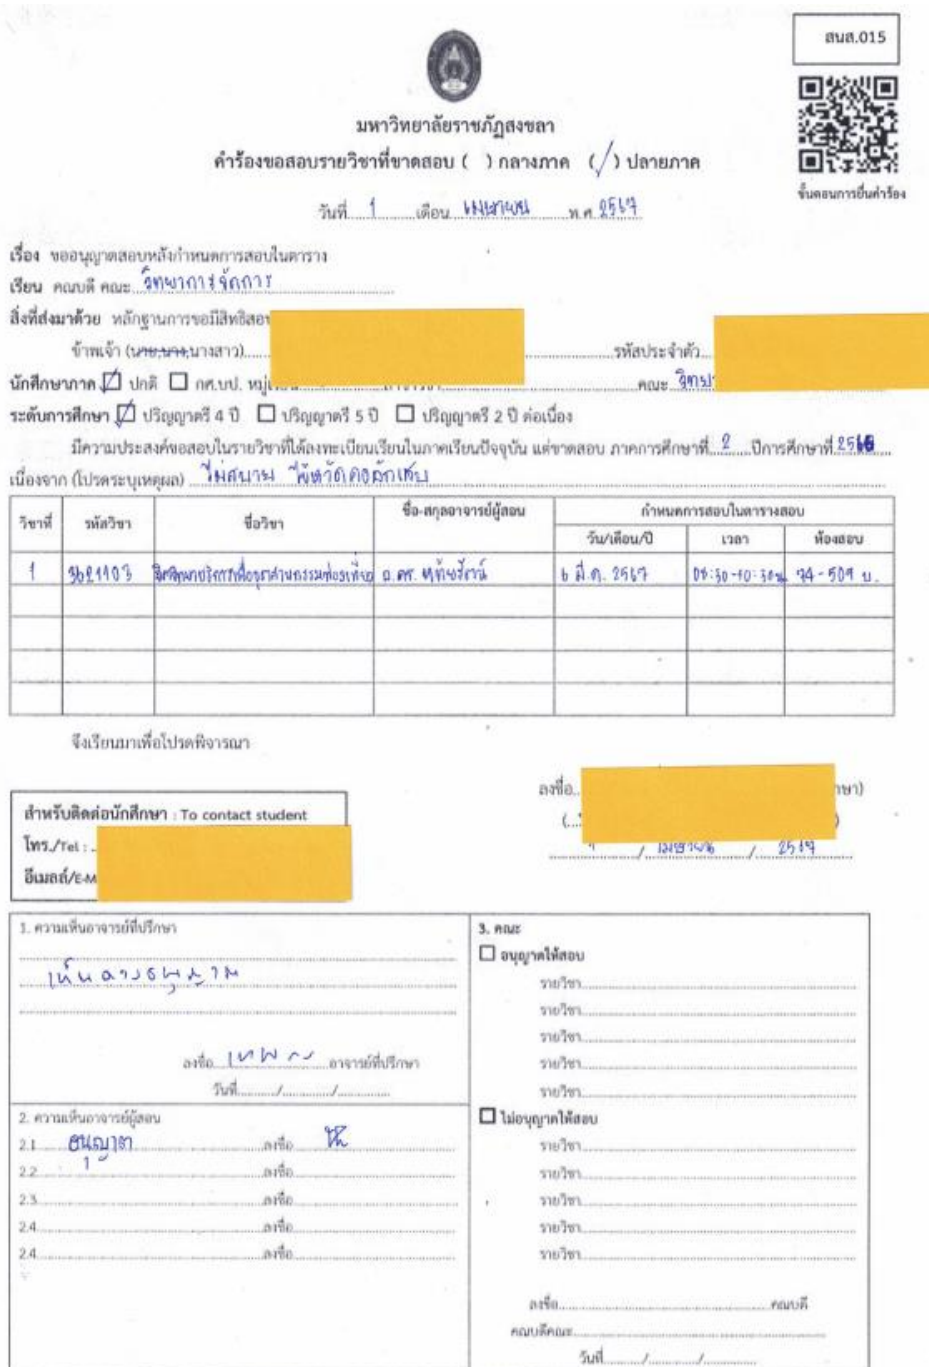 สนส.015
มหาวิทยาลัยราชภัฏสงขลา
คำร้องขอสอบรายวิชาที่ขาดสอบ ( ) กลางภาค (/) ปลายภาค
ขั้นตอนการยื่นคำร้อง
วันที่ 1 เดือน เมษายน พ.ศ. 2567
เรื่อง ขออนุญาตสอบหลังกำหนดการสอบในตาราง
เรียน คณบดี คณะ วิทยาการจัดการ
สิ่งที่ส่งมาด้วย หลักฐานการขอมีสิทธิสอบ
ข้าพเจ้า (นาย,นาง,นางสาว) รหัสประจำตัว
นักศึกษาภาค ☑ ปกติ ☐ กศ.บป. หมู่เรียน คณะ วิทยา
ระดับการศึกษา ☑ ปริญญาตรี 4 ปี ☐ ปริญญาตรี 5 ปี ☐ ปริญญาตรี 2 ปี ต่อเนื่อง
มีความประสงค์ขอสอบในรายวิชาที่ได้ลงทะเบียนเรียนในภาคเรียนปัจจุบัน แต่ขาดสอบ ภาคการศึกษาที่ 2 ปีการศึกษาที่
เนื่องจาก (โปรดระบุเหตุผล) ไม่สบาย ไข้หวัดคออักเสบ
วิชาที่ รหัสวิชา ชื่อวิชา ชื่อ-สกุลอาจารย์ผู้สอน กำหนดการสอบในตารางสอบ
วัน/เดือน/ปี เวลา ห้องสอบ
1 3621103 จิตวิทยาบริการเพื่ออุตสาหกรรมท่องเที่ยว อ.ดร. หทัยรัตน์ 6 มี.ค. 2567 08:30-10:30น 74-501 บ.
จึงเรียนมาเพื่อโปรดพิจารณา
ลงชื่อ
1 / เมษายน / 2567
สำหรับติดต่อนักศึกษา : To contact student
โทร./Tel :
อีเมลล์/E-M
1. ความเห็นอาจารย์ที่ปรึกษา
เห็นควรอนุญาต
ลงชื่อ อาจารย์ที่ปรึกษา
วันที่ / /
2. ความเห็นอาจารย์ผู้สอน
2.1 อนุญาต ลงชื่อ
2.2 ลงชื่อ
2.3 ลงชื่อ
2.4 ลงชื่อ
2.4 ลงชื่อ
3. คณะ
☐ อนุญาตให้สอบ
รายวิชา
รายวิชา
รายวิชา
รายวิชา
รายวิชา
☐ ไม่อนุญาตให้สอบ
รายวิชา
รายวิชา
รายวิชา
รายวิชา
รายวิชา
ลงชื่อ คณบดี
คณบดีคณะ
วันที่ / /